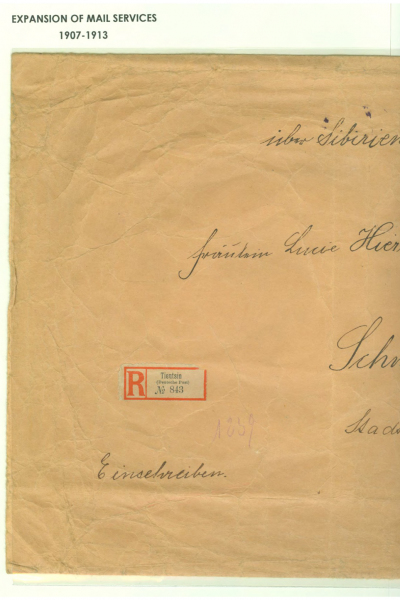 EXPANSION OF MAIL SERVICES
1907-1913
über Sibirien
Fräulein Lucie Hier
Schw
R
Tientsin
(Deutsche Post)
№ 843
1229
Stad
Einschreiben.